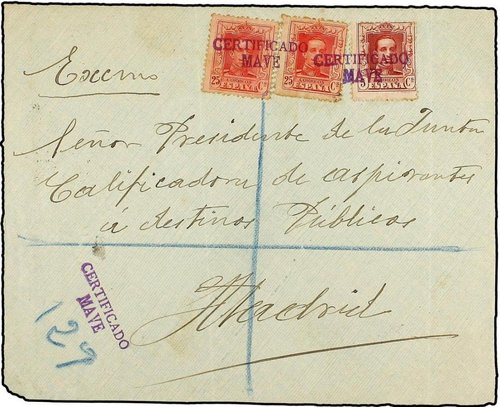 CERTIFICADO
MAVE
CERTIFICADO
MAVE
25 ESPAÑA Cs
25 ESPAÑA Cs
5 ESPAÑA Cs
Excmo
Señor Presidente de la Junta
Calificadora de aspirantes
á destinos Públicos
Madrid
CERTIFICADO
MAVE
129